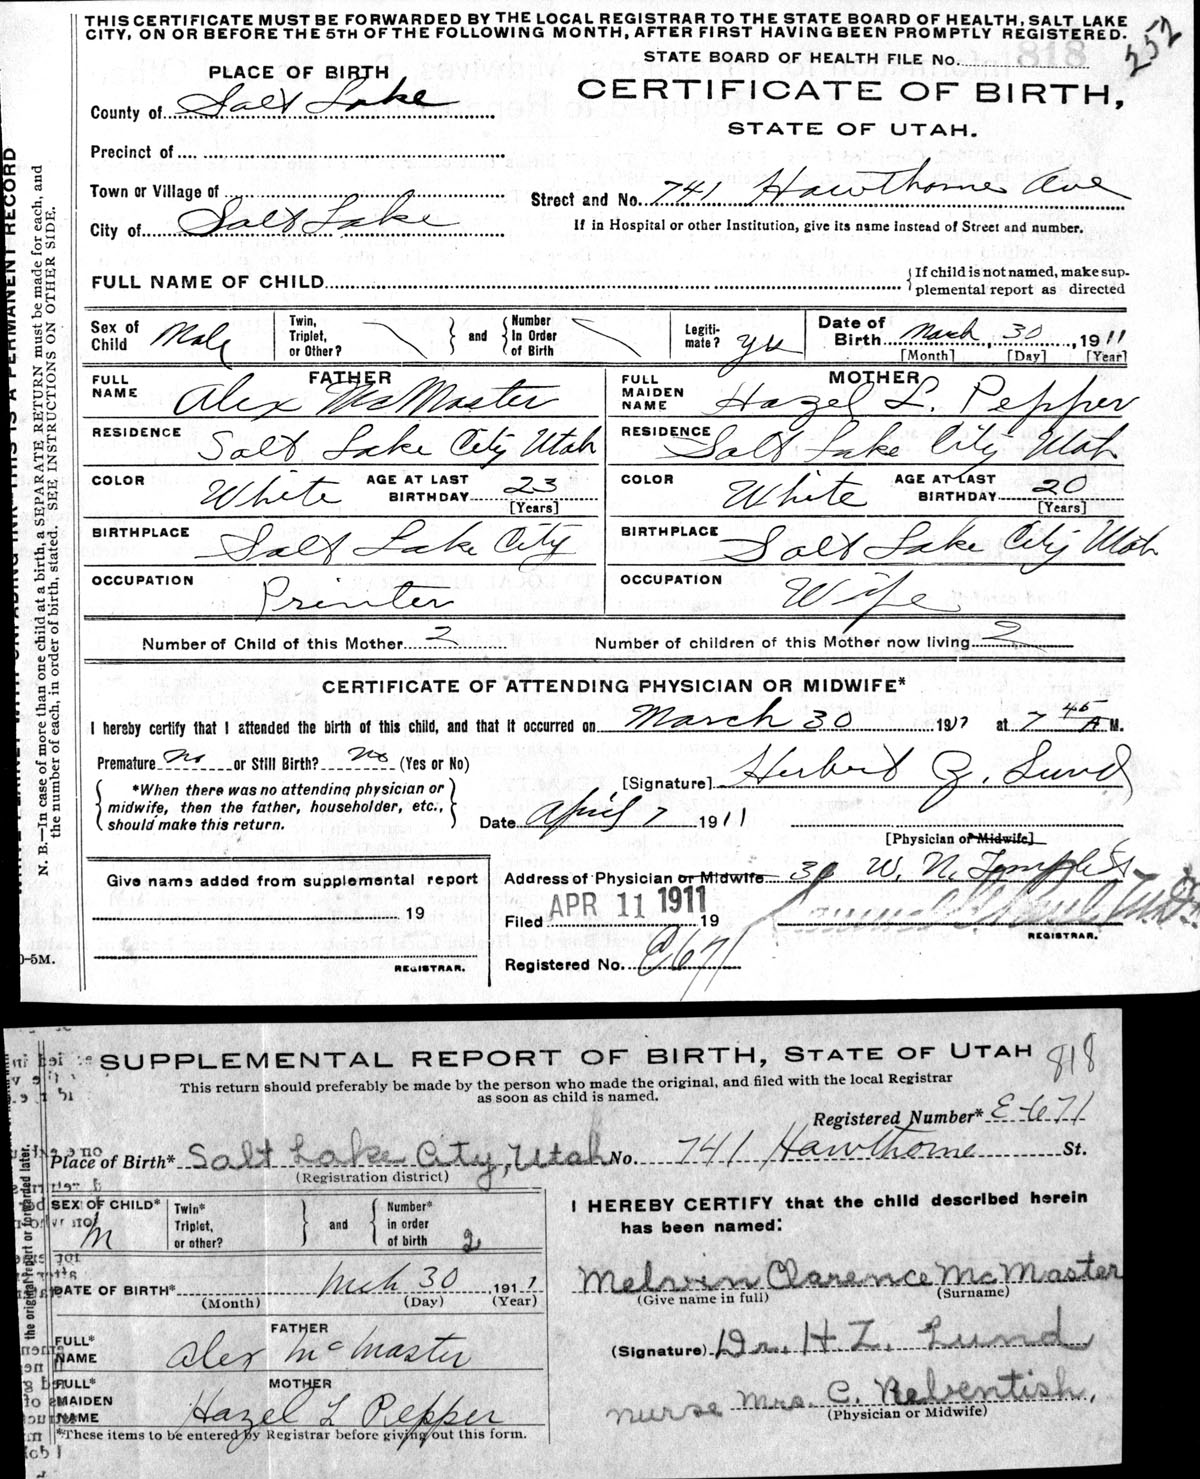 THIS CERTIFICATE MUST BE FORWARDED BY THE LOCAL REGISTRAR TO THE STATE BOARD OF HEALTH, SALT LAKE
CITY, ON OR BEFORE THE 5TH OF THE FOLLOWING MONTH, AFTER FIRST HAVING BEEN PROMPTLY REGISTERED.
252
STATE BOARD OF HEALTH FILE No. 818
PLACE OF BIRTH
CERTIFICATE OF BIRTH,
STATE OF UTAH.
County of Salt Lake
Precinct of
Town or Village of
Street and No. 741 Hawthorne Ave
City of Salt Lake
If in Hospital or other Institution, give its name instead of Street and number.
FULL NAME OF CHILD
{If child is not named, make sup-
plemental report as directed
Sex of Child Male
Twin, Triplet, or Other?
and
Number In Order of Birth
Legiti-mate? yes
Date of Birth March 30, 1911
[Month] [Day] [Year]
FATHER
FULL NAME Alex McMaster
RESIDENCE Salt Lake City Utah
COLOR White AGE AT LAST BIRTHDAY 23 [Years]
BIRTHPLACE Salt Lake City
OCCUPATION Printer
MOTHER
FULL MAIDEN NAME Hazel L. Pepper
RESIDENCE Salt Lake City Utah
COLOR White AGE AT LAST BIRTHDAY 20 [Years]
BIRTHPLACE Salt Lake City Utah
OCCUPATION Wife
Number of Child of this Mother 2 Number of children of this Mother now living 2
CERTIFICATE OF ATTENDING PHYSICIAN OR MIDWIFE*
I hereby certify that I attended the birth of this child, and that it occurred on March 30 1911 at 7 45 A M.
Premature no or Still Birth? no (Yes or No)
[Signature] Herbert Z. Lund
*When there was no attending physician or
midwife, then the father, householder, etc.,
should make this return.
Date April 7 1911
[Physician or Midwife]
Address of Physician or Midwife 30 W. N. Temple St
Give name added from supplemental report
19
REGISTRAR.
Filed APR 11 1911 19
REGISTRAR.
Registered No. 671
PERMANENT RECORD
N. B.—In case of more than one child at a birth, a SEPARATE RETURN must be made for each, and
the number of each, in order of birth, stated. SEE INSTRUCTIONS ON OTHER SIDE.
-5M.
SUPPLEMENTAL REPORT OF BIRTH, STATE OF UTAH
818
This return should preferably be made by the person who made the original, and filed with the local Registrar
as soon as child is named.
Registered Number* E-671
Place of Birth* Salt Lake City, Utah No. 741 Hawthorne St.
(Registration district)
SEX OF CHILD* M
Twin* Triplet, or other?
and
Number* in order of birth 2
DATE OF BIRTH* Mch 30, 1911
(Month) (Day) (Year)
FATHER
FULL* NAME Alex McMaster
MOTHER
FULL* MAIDEN NAME Hazel L Pepper
*These items to be entered by Registrar before giving out this form.
I HEREBY CERTIFY that the child described herein
has been named:
Melvin Clarence McMaster
(Give name in full) (Surname)
(Signature) Dr. H Z. Lund
nurse Mrs. C. Rebentish,
(Physician or Midwife)
the original report or forwarded later.